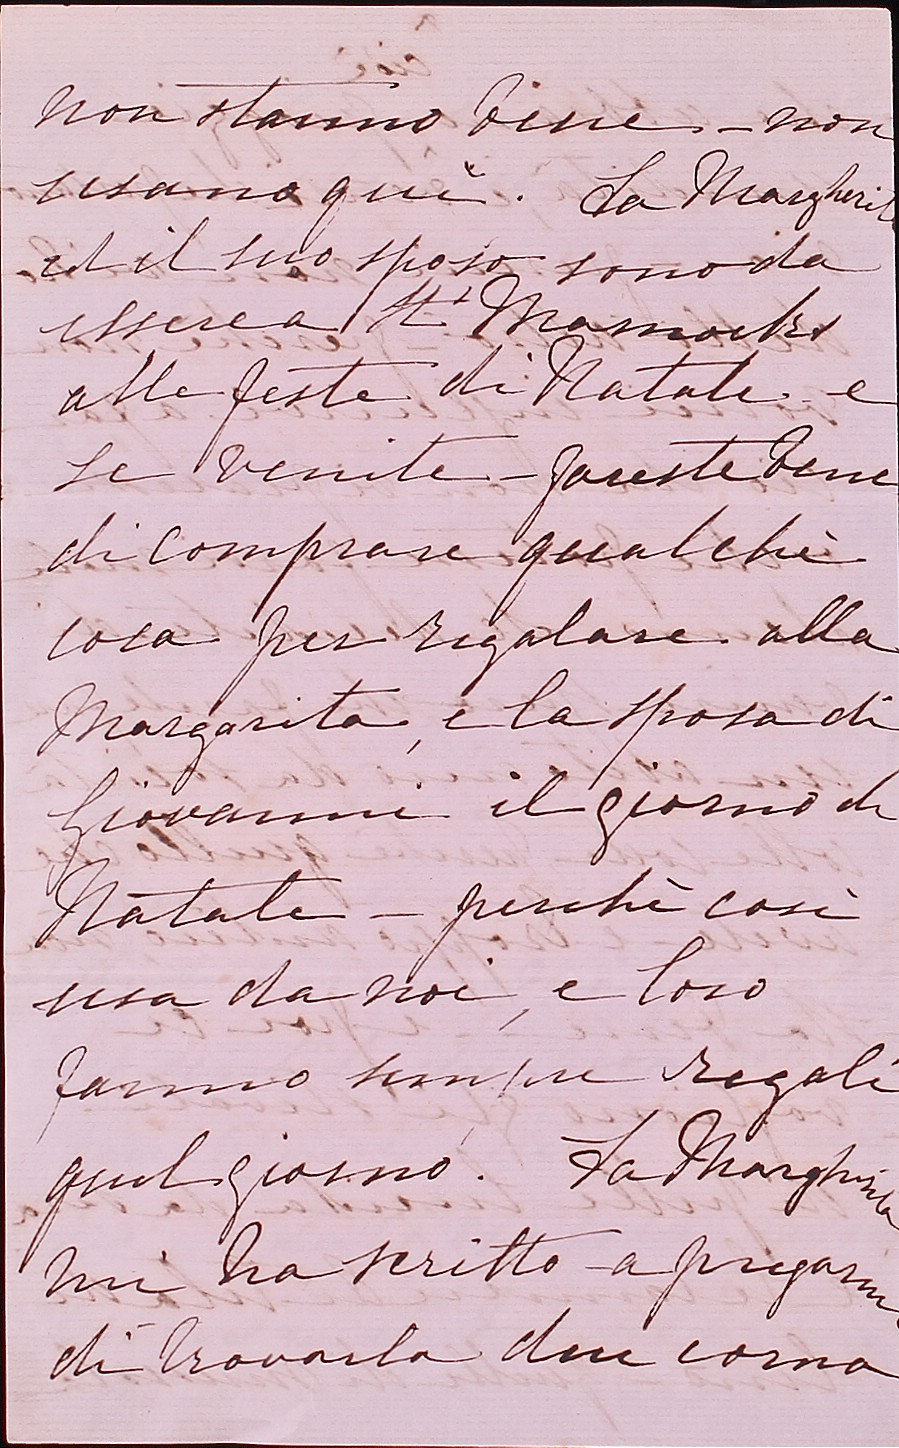 non stanno bene – non
usano quì. La Margherita
ed il suo sposo sono da
essere a St.
alle feste di Natale e
se venite – fareste bene
di comprare qualchè
cosa per regalare alla
Margarita, e la sposa di
Giovanni il giorno di
Natale – perchè così
usa da noi, e loro
fanno sempre regali
quel giorno. La Margherita
mi ha scritto – a pregarmi
di trovarla due corna